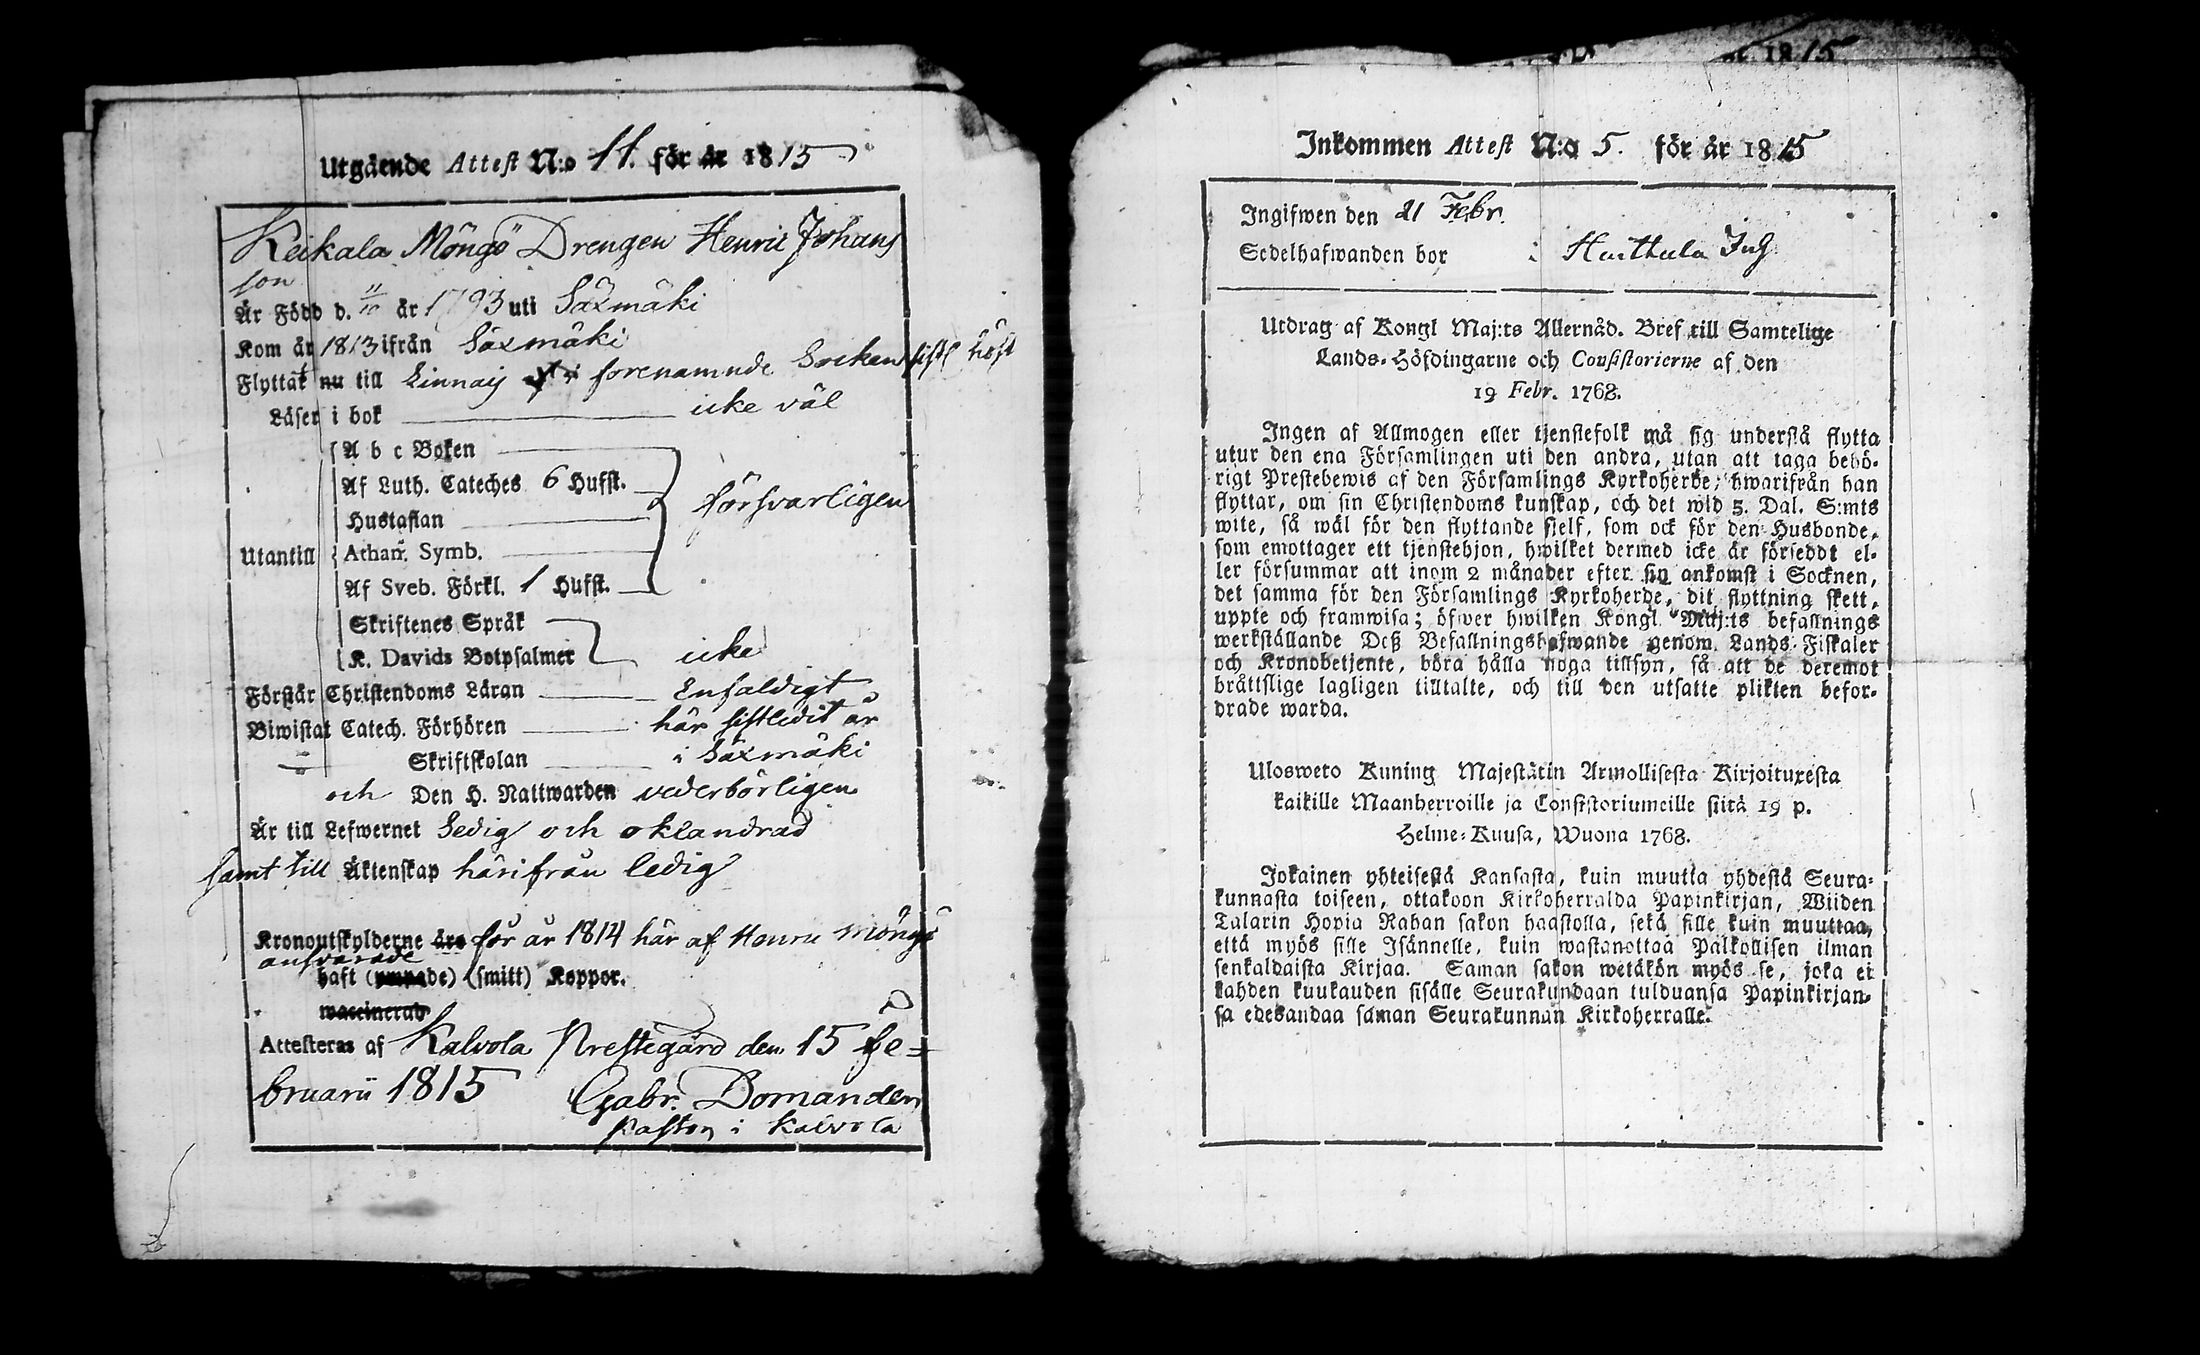 Utgående Attest N:o 11. för år 1815
Keikala Möngö Drengen Henric Johans
son
Är Född d. 11/10 år 1793 uti Säxmäki
Kom år 1813 ifrån Säxmäki
Flyttat nu till förenämnde Socken sistl höst
Läser i bok icke väl
A b c Boken
Af Luth. Cateches 6 Hufst.
Hustaflan
försvarligen
Utantill
Athan. Symb.
Af Sveb. Förkl. 1 Hufst.
Skriftenes Språk
K. Davids Botpsalmer icke
Förstår Christendoms Läran Enfaldigt
Biwistat Catech. Förhören här sistledit år
Skriftskolan i Säxmäki
och Den H. Nattwarden vederbörligen
Är till Lefwernet Sedig och oklandrad
samt till Äktenskap härifrån ledig
Kronoutskylderne äro för år 1814 här af Henric Möngö
ansvarade
haft (ympade) (smitt) Koppor.
waccinerad
Attesteras af Kalvola Prestegård den 15 Fe=
bruarii 1815 Gabr. Domander
Pastor i Kalvola
18 15
Inkommen Attest N:o 5. för år 1815
Ingifwen den 21 Febr.
Sedelhafwanden bor i Hutthula
Utdrag af Kongl Maj:ts Allernåd. Bref till Samtelige
Lands-Höfdingarne och Consistorierne af den
19 Febr. 1768.
Ingen af Allmogen eller tjenstefolk må sig understå flytta
utur den ena Församlingen uti den andra, utan att taga behö-
rigt Prestebewis af den Församlings Kyrkoherde, hwarifrån han
flyttar, om sin Christendoms kunskap, och det wid 5. Dal. S:mts
wite, så wäl för den flyttande sjelf, som ock för den Husbonde,
som emottager ett tjenstehjon, hwilket dermed icke är förseddt el-
ler försummar att inom 2 månader efter sin ankomst i Socknen,
det samma för den Församlings Kyrkoherde, dit flyttning skett,
uppte och framwisa; öfwer hwilken Kongl. Maj:ts befallnings
werkställande Deß Befallningshafwande genom Lands-Fiskaler
och Kronobetjente, böra hålla noga tillsyn, så att de deremot
bråttslige lagligen tilltalte, och till den utsatte plikten befor-
drade warda.
Ulosweto Kuning Majestätin Armollisesta Kirjoituxesta
kaikille Maanherroille ja Consistoriumeille siitä 19 p.
Helme-Kuusa, Wuona 1768.
Jokainen yhteisestä Kansasta, kuin muutta yhdestä Seura-
kunnasta toiseen, ottakoon Kirkoherralda Papinkirjan, Wiiden
Talarin Hopia Rahan sakon haastolla, sekä sille kuin muuttaa,
että myös sille Isännelle, kuin wastanottaa Palkollisen ilman
senkaldaista Kirjaa. Saman sakon wetäkön myös se, joka ei
kahden kuukauden sisälle Seurakundaan tulduansa Papinkirjan-
sa edeskandaa saman Seurakunnan Kirkoherralle.